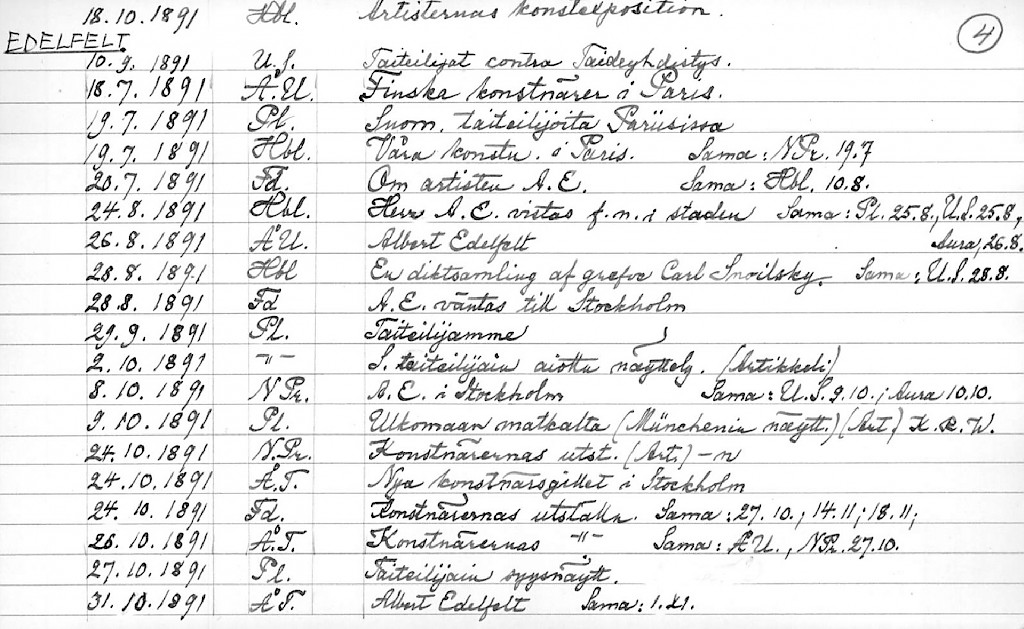 18.10.1891 Hbl. Artisternas konstexposition.
EDELFELT 4
10.9. 1891 U.S. Taiteilijat contra Taideyhdistys.
18.7. 1891 Å.U. Finska konstnärer i Paris.
19.7. 1891 Pl. Suom. taiteilijoita Pariisissa
19.7. 1891 Hbl. Våra konstn. i Paris. Sama: N.Pr. 19.7
20.7. 1891 Fd. Om artisten A.E. Sama: Hbl. 10.8.
24.8. 1891 Hbl. Herr A.E. vistas f.n. i staden Sama: Pl. 25.8., U.S. 25.8.,
26.8. 1891 Å.U. Albert Edelfelt Aura, 26.8.
28.8. 1891 Hbl En diktsamling af grefve Carl Snoilsky. Sama: U.S. 28.8.
28.8. 1891 Fd A.E. väntas till Stockholm
29.9. 1891 Pl. Taiteilijamme
2.10. 1891 -"- S. taiteilijain aiottu näyttely. (Artikkeli)
8.10. 1891 N.Pr. A.E. i Stockholm Sama: U.S. 9.10.; Aura 10.10.
9.10. 1891 Pl. Ulkomaan matkalta (Münchenin näytt.) (Art.) K.R.W.
24.10.1891 N.Pr. Konstnärernas utst. (Art.) -n
24.10.1891 Å.T. Nya konstnärsgillet i Stockholm
24.10.1891 Fd. Konstnärernas utställn. Sama: 27.10.; 14.11; 18.11;
26.10.1891 Å.T. Konstnärernas -"- Sama: ÅU., N.Pr. 27.10.
27.10.1891 Pl. Taiteilijain syysnäytt.
31.10.1891 Å.T. Albert Edelfelt Sama: 1.XI.